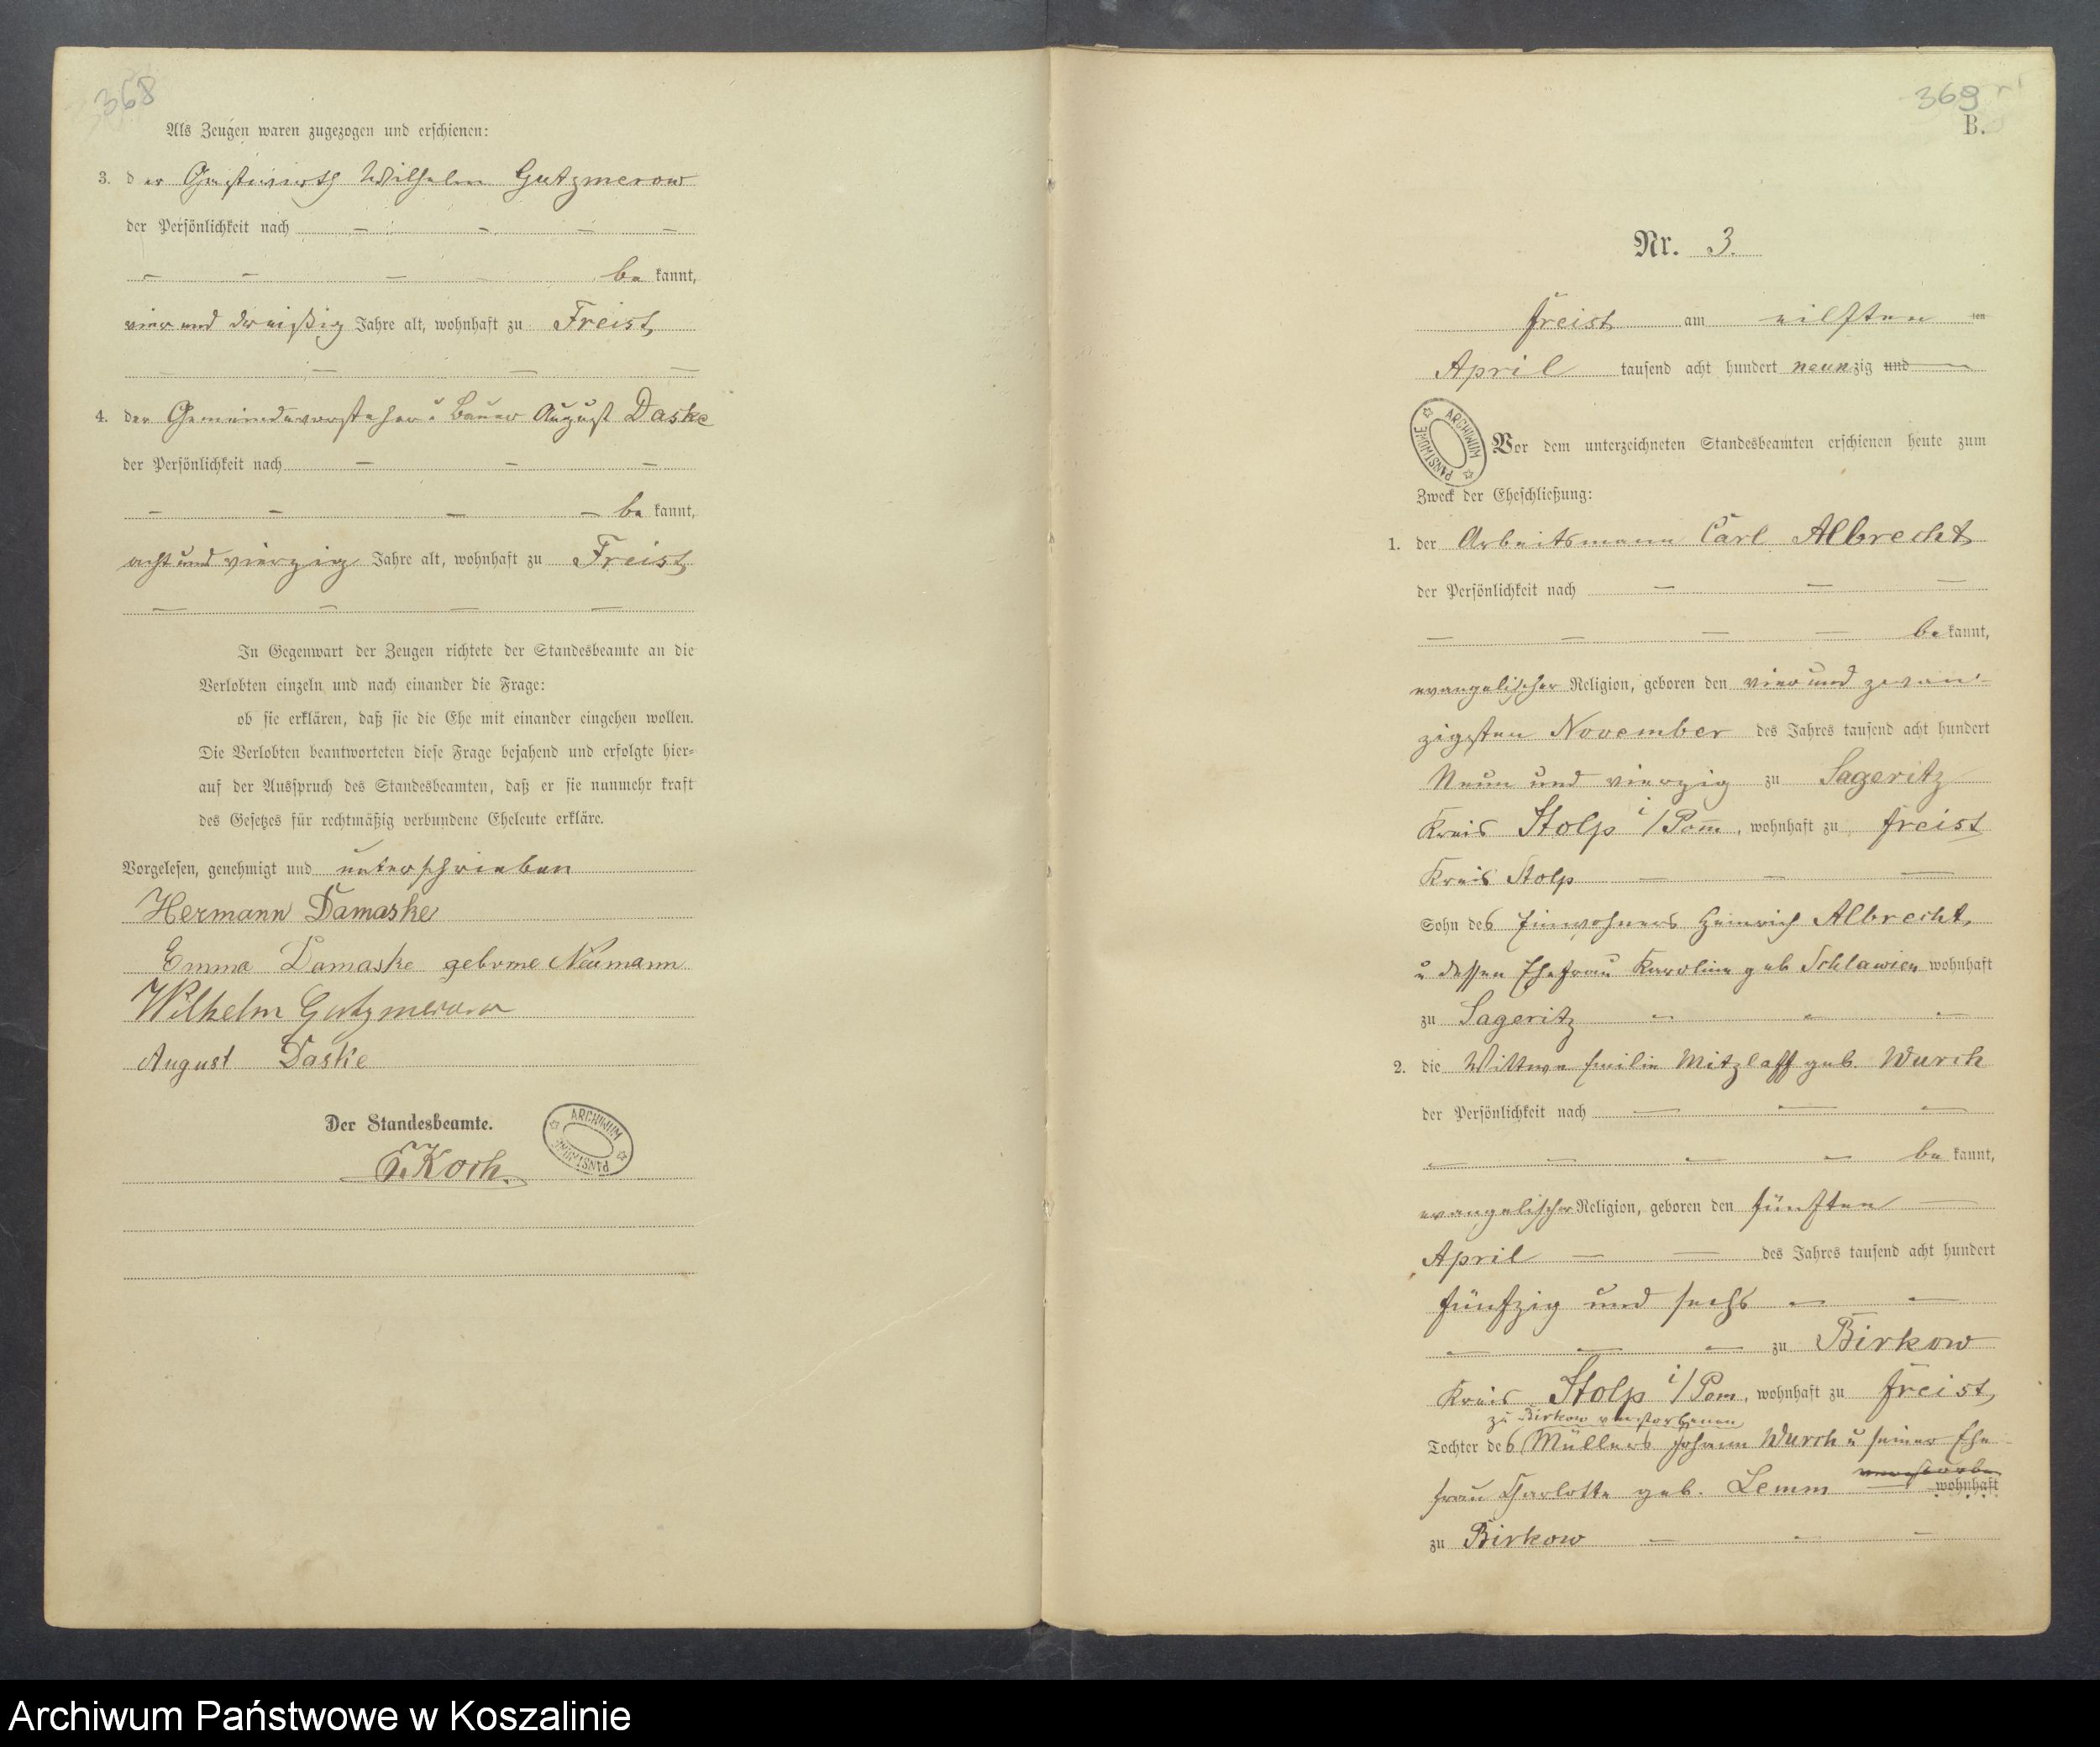 368
Als Zeugen waren zugezogen und erschienen:
3. der Gastwirth Wilhelm Gutzmerow
der Persönlichkeit nach — — — —
— — — — be kannt,
vier und dreißig Jahre alt, wohnhaft zu Freist
— — — —
4. der Gemeindevorsteher u Bauer August Daske
der Persönlichkeit nach — — —
— — — — be kannt,
acht und vierzig Jahre alt, wohnhaft zu Freist
— — — —
In Gegenwart der Zeugen richtete der Standesbeamte an die
Verlobten einzeln und nach einander die Frage:
ob sie erklären, daß sie die Ehe mit einander eingehen wollen.
Die Verlobten beantworteten diese Frage bejahend und erfolgte hier-
auf der Ausspruch des Standesbeamten, daß er sie nunmehr kraft
des Gesetzes für rechtmäßig verbundene Eheleute erkläre.
Vorgelesen, genehmigt und unterschrieben
Hermann Damaske
Emma Damaske geborne Neumann
Wilhelm Gutzmerow
August Daske
Der Standesbeamte.
Koch.
ARCHIWUM PAŃSTWOWE
369
B.
Nr. 3.
Freist am eilften ten
April tausend acht hundert neunzig und —
ARCHIWUM PAŃSTWOWE
Vor dem unterzeichneten Standesbeamten erschienen heute zum
Zweck der Eheschließung:
1. der Arbeitsmann Carl Albrecht
der Persönlichkeit nach — — —
— — — — be kannt,
evangelischer Religion, geboren den vier und zwan-
zigsten November des Jahres tausend acht hundert
Neun und vierzig zu Sageritz
Kreis Stolp i/Pom̄, wohnhaft zu Freist
Kreis Stolp — — —
Sohn des Einwohners Heinrich Albrecht
u dessen Ehefrau Karoline geb Schlawien wohnhaft
zu Sageritz — — —
2. die Wittwe Emilie Mitzlaff geb. Wurch
der Persönlichkeit nach — — —
— — — — be kannt,
evangelischer Religion, geboren den fünften —
April — — des Jahres tausend acht hundert
fünfzig und sechs — —
— — — zu Birkow
Kreis Stolp i/Pom, wohnhaft zu Freist
zu Birkow verstorbenen
Tochter des Müllers Johann Wurch u seiner Ehe-
verstorbe
frau Charlotte geb. Lemm — wohnhaft
zu Birkow — — —
Archiwum Państwowe w Koszalinie